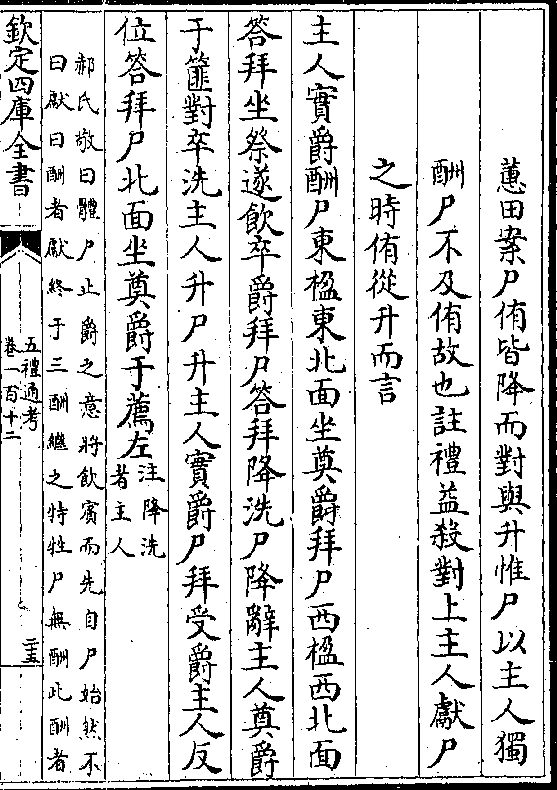 蕙田案尸侑皆降而對與升惟尸以主人獨
酬尸不及侑故也註禮益殺對上主人獻尸
之時侑從升而言
主人實爵酬尸東楹東北面坐奠爵拜尸西楹西北面
答拜坐祭遂飲卒爵拜尸答拜降洗尸降辭主人奠爵
于篚對卒洗主人升尸升主人實爵尸拜受爵主人反
位答拜尸北面坐奠爵于薦左注降洗
者主人
郝氏敬曰體尸止爵之意將飲賓而先自尸始然不
曰獻曰酬者獻終于三酬繼之特牲尸無酬此酬者
欽定四庫全書
五禮通考
卷一百十二
三五